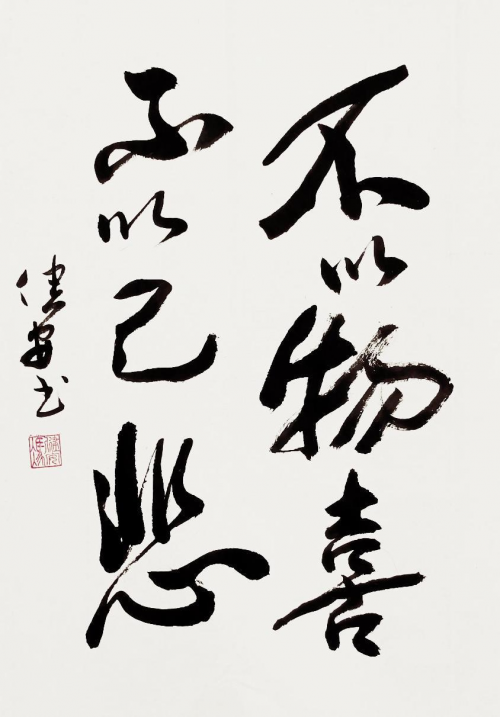 不以物喜
不以己悲